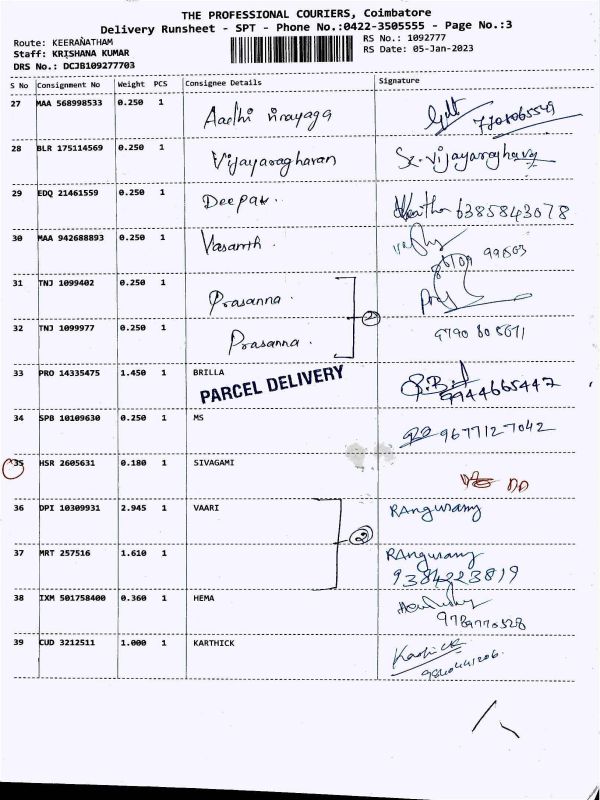 THE PROFESSIONAL COURIERS, Coimbatore
Delivery Runsheet - SPT - Phone No.:0422-3505555 - Page No.:3
Route: KEERANATHAM RS No.: 1092777
Staff: KRISHANA KUMAR RS Date: 05-Jan-2023
DRS No.: DCJB109277703
S No Consignment No Weight PCS Consignee Details Signature
27 MAA 568998533 0.250 1 Aadhi Vinayaga
28 BLR 175114569 0.250 1 Vijayaraghavan Sr. Vijayaraghavan
29 EDQ 21461559 0.250 1 Deepak. 6385843078
30 MAA 942688893 0.250 1 Vasanth.
31 TNJ 1099402 0.250 1 Prasanna.
32 TNJ 1099977 0.250 1 Prasanna. 2
33 PRO 14335475 1.450 1 BRILLA
PARCEL DELIVERY 9944665447
34 SPB 10109630 0.250 1 MS 9677127042
35 HSR 2605631 0.180 1 SIVAGAMI
36 DPI 10309931 2.945 1 VAARI RAnguramy
2
37 MRT 257516 1.610 1 RAnguramy
9384223819
38 IXM 501758400 0.360 1 HEMA
9789770528
39 CUD 3212511 1.000 1 KARTHICK Karthick